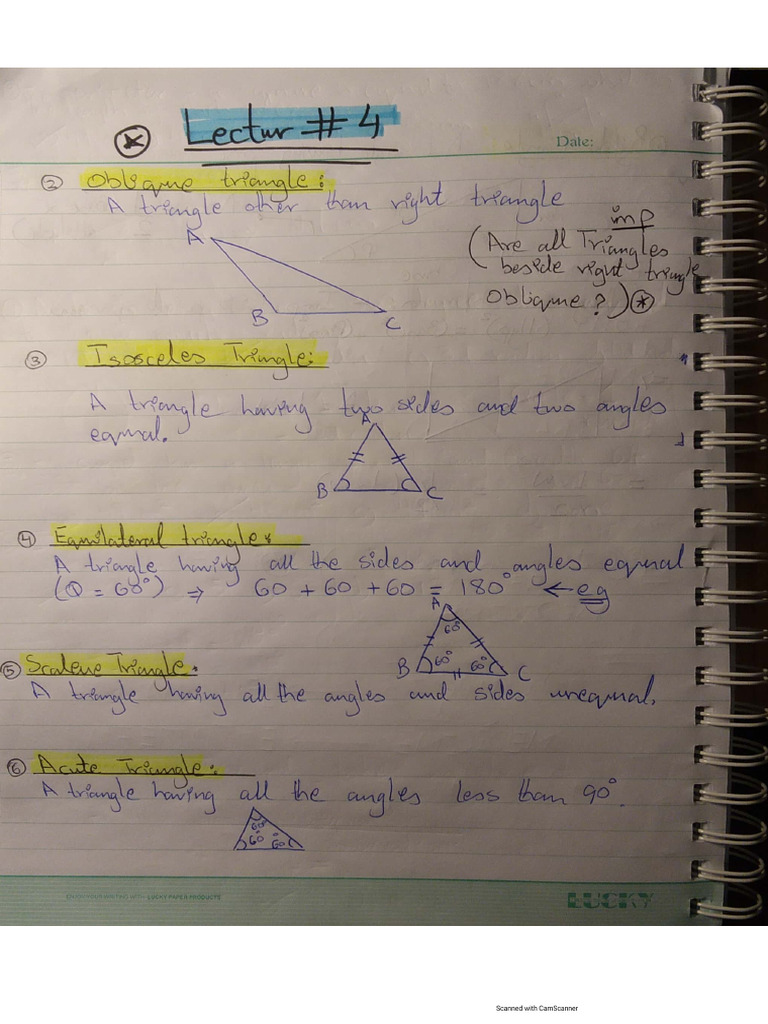 Lectur # 4
Date:
② Oblique triangle:
A triangle other than right triangle
imp
(Are all Triangles
beside right triangle
Oblique?)
A
B
C
③ Isosceles Triangle:
A triangle having two sides and two angles
equal.
A
B
C
④ Equilateral triangle:
A triangle having all the sides and angles equal
(θ = 60°) ⇒ 60 + 60 + 60 = 180° ← eg
A
60°
B 60° 60° C
⑤ Scalene Triangle.
A triangle having all the angles and sides unequal.
⑥ Acute Triangle:
A triangle having all the angles less than 90°.
60°
60° 60°
ENJOY YOUR WRITING WITH LUCKY PAPER PRODUCTS
LUCKY
Scanned with CamScanner